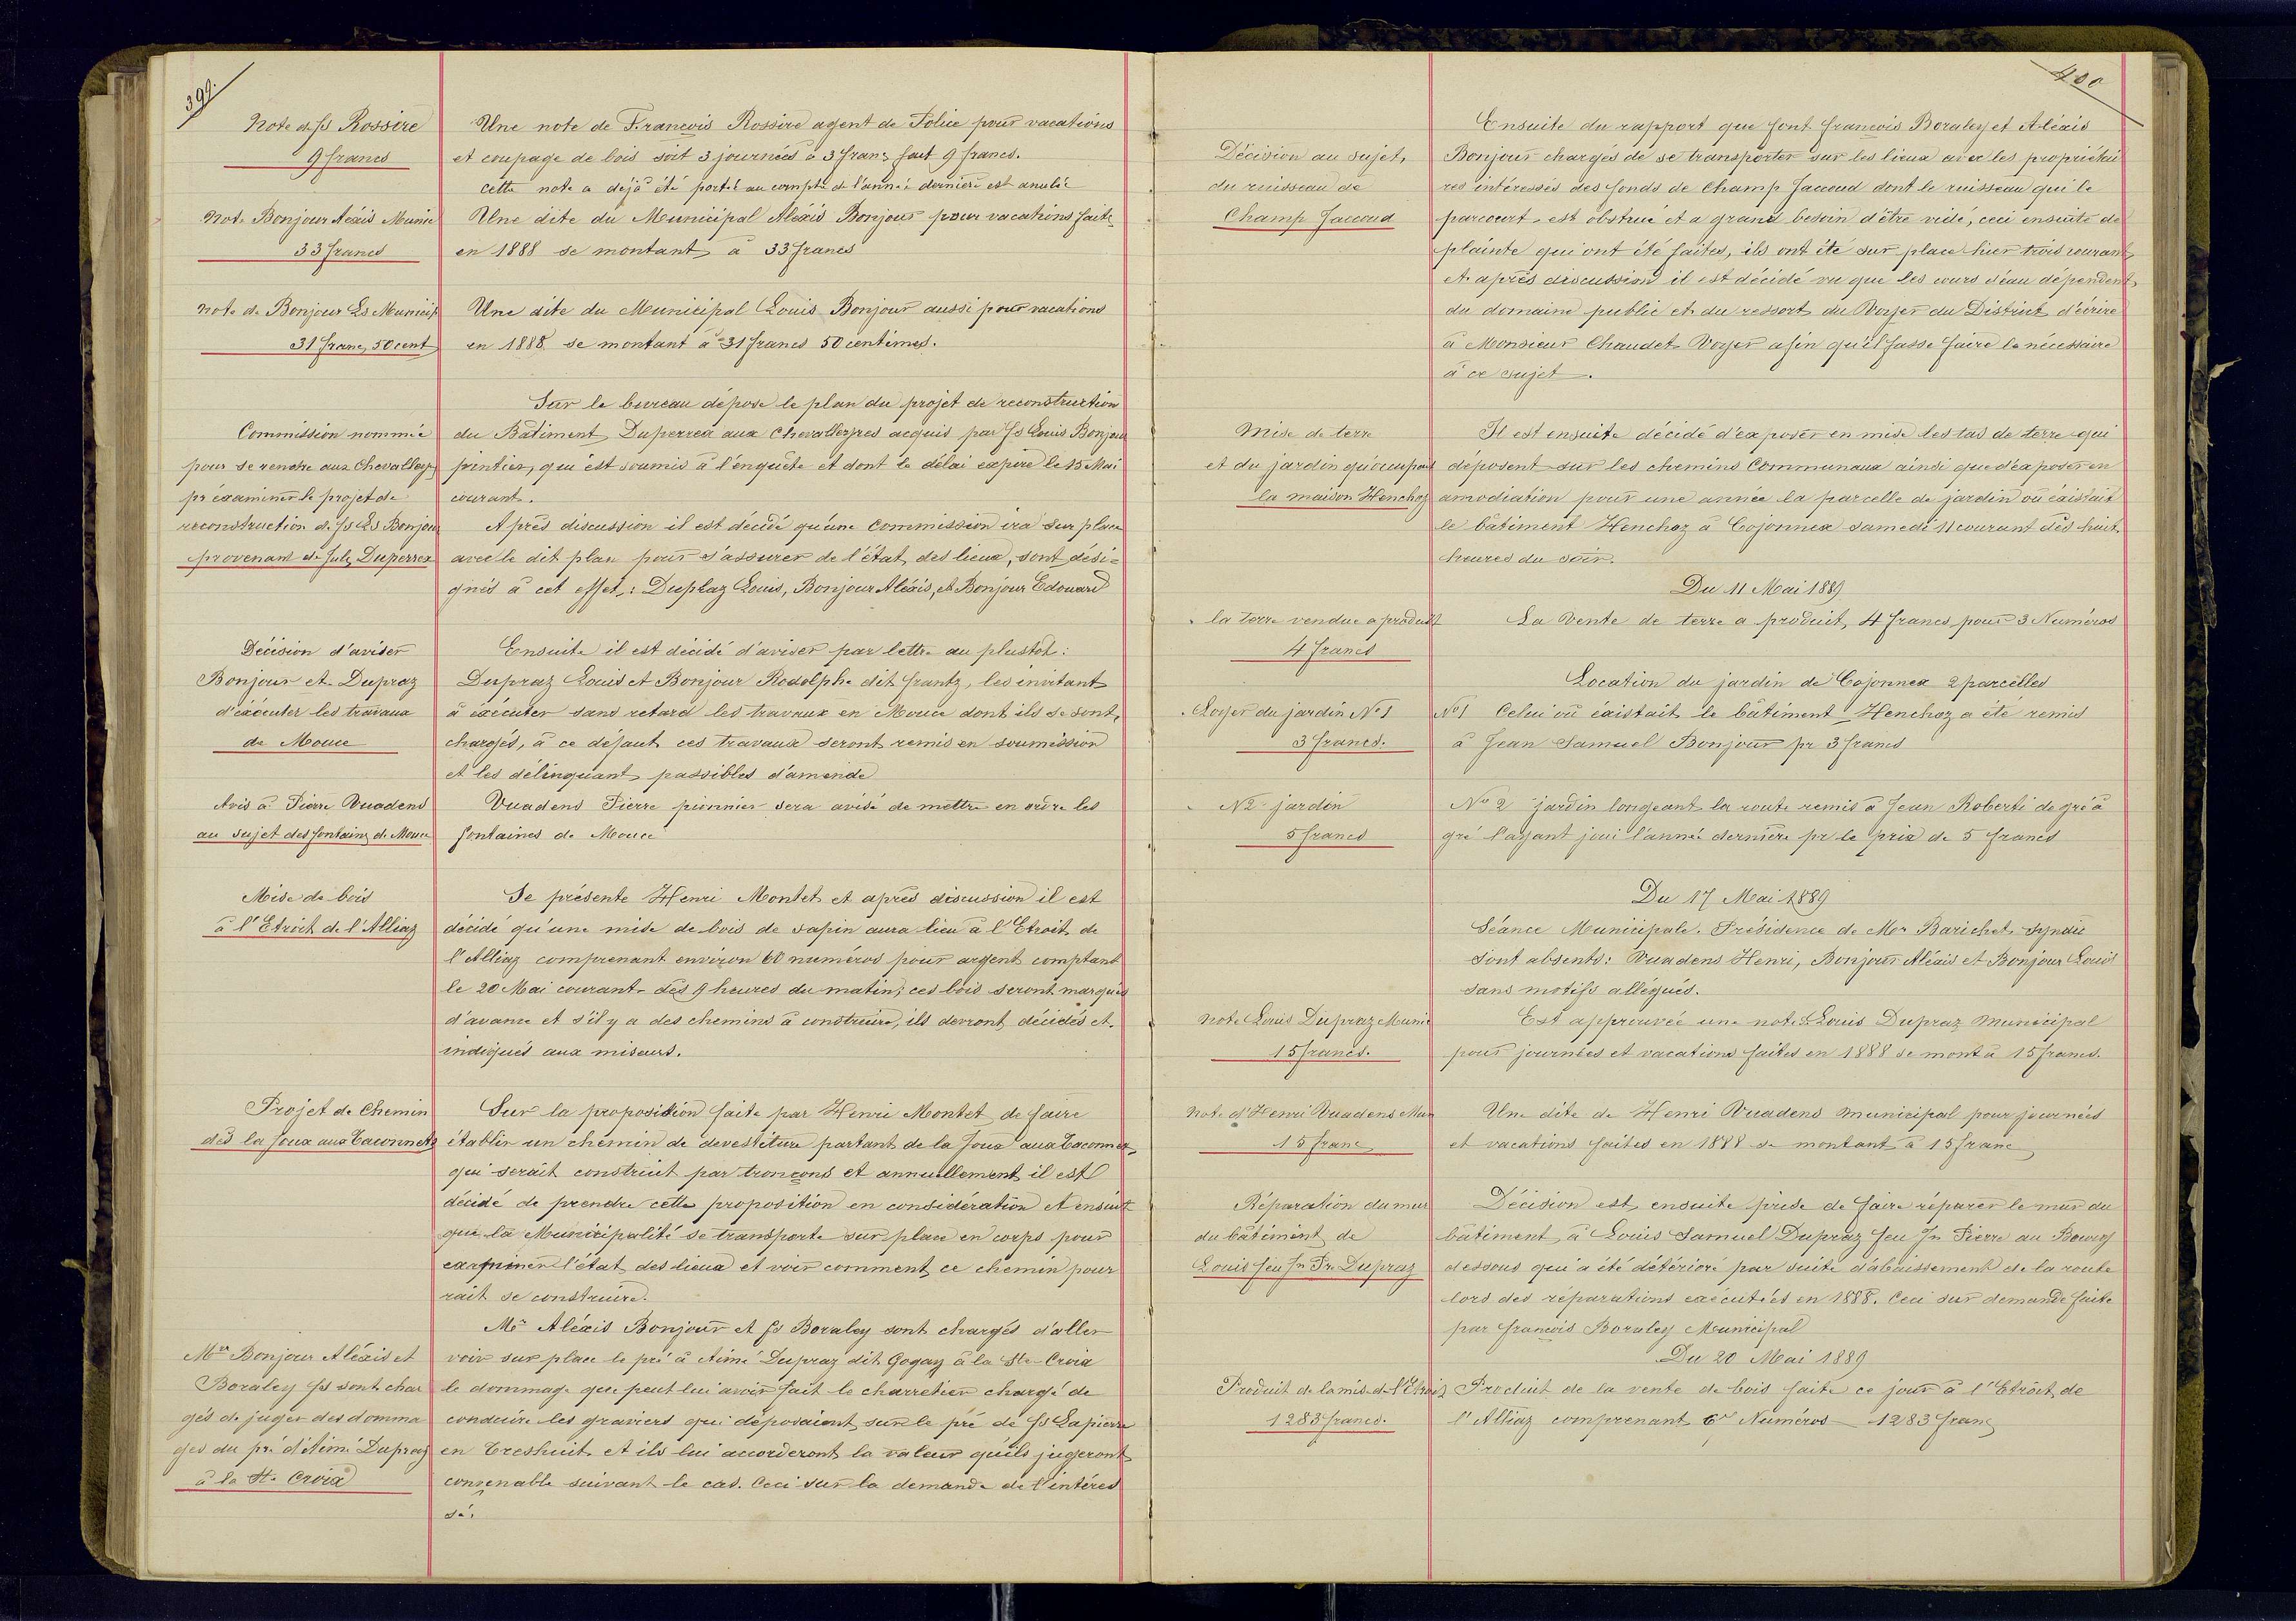 399.
Note de fs Rossire
9 francs
Une note de Francois Rossire agent de Police pour vacations
et coupage de bois soit 3 journées à 3 franc fait 9 francs.
cette note a dejà été portée au compte de l'année derniere est anulée
Note Bonjour Aléxis Munic
33 francs
Une dite du Municipal Aléxis Bonjour pour vacations faite
en 1888 se montant à 33 francs
Note de Bonjour Ls Municip
31 franc, 50 cent
Une dite du Municipal Louis Bonjour aussi pour vacations
en 1888 se montant à 31 francs 50 centimes.
Sur le bureau dépose le plan du projet de reconstruction
Commission nommée
pour se rendre aux Chevalleyres
pr éxaminer le projet de
reconstruction de fs Ls Bonjour
provenant de Jules Duperrex
du Bâtiment Duperrex aux Chevalleyres acquis par fs Louis Bonjour
pintier, qui est soumis à l'enquête et dont le délai éxpire le 15 Mai
courant.
Après discussion il est décidé qu'une Commission ira sur place
avec le dit plan pour s'assurer de l'état des lieux, sont dési=
gnés à cet effet,: Dupraz Louis, Bonjour Aléxis, et Bonjour Edouard
Décision d'aviser
Bonjour et Dupraz
d'éxécuter les travaux
de Mouce
Ensuite il est décidé d'aviser par lettre au plustot:
Dupraz Louis et Bonjour Rodolphe dit frantz, les invitant
à éxécuter sans retard les travaux en Mouce dont ils se sont
chargés, à ce défaut ces travaux seront remis en soumission
et les délinquant passibles d'amende
Avis à Pierre Vuadens
au sujet des fontaines de Mouce
Vuadens Pierre pionnier sera avisé de mettre en ordre les
fontaines de Mouce
Mise de bois
à l'Etroit de l'Alliaz
Se présente Henri Montet et après discussion il est
décidé qu'une mise de bois de sapin aura lieu à l'Etroit de
l'Alliaz comprenant environ 60 numéros pour argent comptant
le 20 Mai courant dès 9 heures du matin; ces bois seront marqués
d'avance et s'il y a des chemins à construire, ils devront décidés et
indiqués aux miseurs.
Projet de Chemin
dès la Joux aux Taconnets
Sur la proposition faite par Henri Montet de faire
établir un chemin de devestiture partant de la Joux aux Taconnex,
qui serait construit par tronçons et annuellement il est
décidé de prendre cette proposition en considération et ensuit
que la Municipalité se transporte sur place en corps pour
examiner l'état des lieux et voir comment ce chemin pour
rait se construire.
Mr Aléxis Bonjour et fs Boraley sont chargés d'aller
Mrs Bonjour Aléxis et
Boraley fs sont char
gés de juger des domma
ges du pré d'Aimé Dupraz
à la Ste Croix
voir sur place le pré à Aimé Dupraz dit Gogaz à la Ste Croix
le dommage que peut lui avoir fait le charretier chargé de
conduire les graviers qui déposaient sur le pré de fs Lapierre
en Creshuit et ils lui accorderont la valeur qu'ils jugeront
convenable suivant le cas. Ceci sur la demande de l'intéres
sé.
400
Ensuite du rapport que font francois Boraley et Aléxis
Décision au sujet
du ruisseau de
Champ Jaccoud
Bonjour chargés de se transporter sur les lieux avec les propriétai
res intéressés des fonds de Champ Jaccoud dont le ruisseau qui le
parcourt est obstrué et a grand besoin d'être vidé, ceci ensuite de
plainte qui ont été faites, ils ont été sur place hier trois courant
et après discussion il est décidé vu que les cours d'eau dépendent
du domaine public et du ressort du Voyer du District d'écrire
à Monsieur Chaudet Voyer afin qu'il fasse faire le nécessaire
à ce sujet.
Mise de terre
et du jardin qu'occupait
la maison Henchoz
Il est ensuite décidé d'exposer en mise les tas de terre qui
déposent sur les chemins Communaux ainsi que d'éxposer en
amodiation pour une année la parcelle de jardin où éxistait
le bâtiment Henchoz à Cojonnex samedi 11 courant dès huit
heures du soir.
Du 11 Mai 1889
la terre vendue a produit
4 francs
La Vente de terre a produit, 4 francs pour 3 Numéros
Location du jardin de Cojonnex 2 parcelles
Loyer du jardin No 1
3 francs.
No 1 Celui où éxistait le bâtiment Henchoz a été remis
à Jean Samuel Bonjour pr 3 francs
No 2 jardin
5 francs
No 2 jardin longeant la route remis à Jean Roberti de gré à
gré l'ayant joui l'année dernière pr le prix de 5 francs
Du 17 Mai 1889
Séance Municipale. Présidence de Mr Barichet, syndic
Sont absents: Vuadens Henri, Bonjour Aléxis et Bonjour Louis
sans motifs allégués.
Note Louis Dupraz Munic
15 francs.
Est approuvée une note Louis Dupraz Municipal
pour journées et vacations faites en 1888 se mont à 15 francs.
Note d'Henri Vuadens Mun
15 franc
Une dite de Henri Vuadens Municipal pour journées
et vacations faites en 1888 se montant à 15 franc
Réparation du mur
du bâtiment de
Louis feu Jn Pre Dupraz
Décision est, ensuite prise de faire réparer le mur du
bâtiment à Louis Samuel Dupraz feu Jn Pierre au Bourg
dessous qui a été détérioré par suite d'abaissement de la route
lors des réparations éxécutées en 1888. Ceci sur demande faite
par francois Boraley Municipal
Du 20 Mai 1889
Produit de la mise de l'Etroit
1283 francs.
Produit de la vente de bois faite ce jour à l'Etroit de
l'Alliaz comprenant Numéros 1283 franc